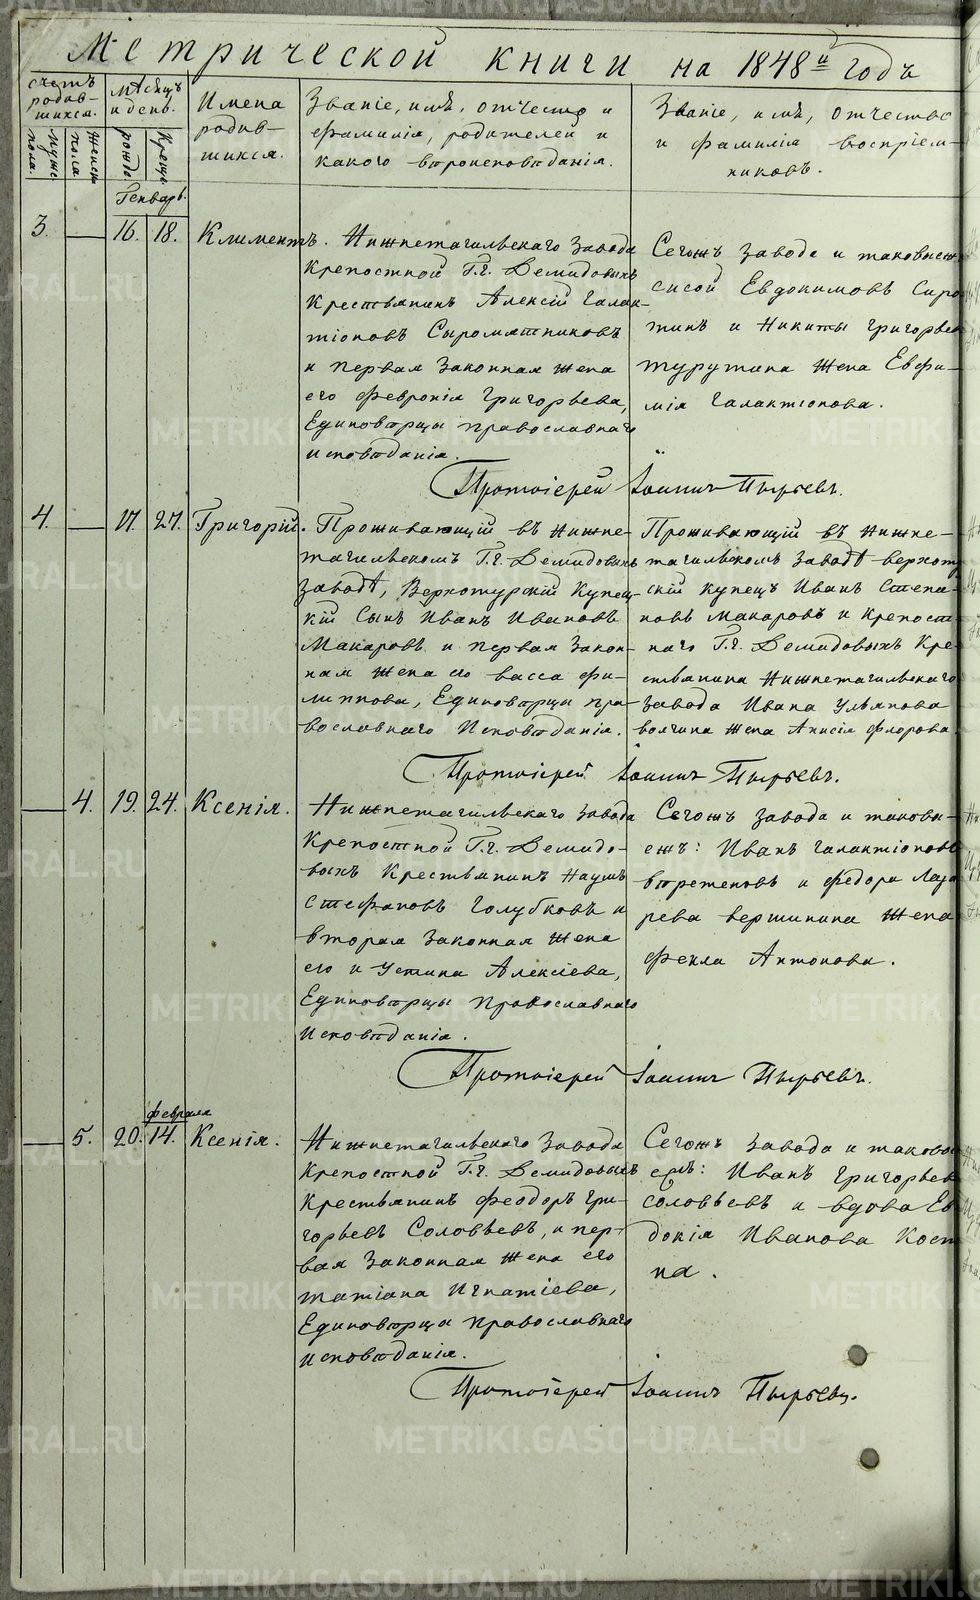 Метрической книги на 1848й годъ
счетъ родив-шихся.
Муже. пола.
Женск. пола
Мѣсяцъ и день.
рожд.
Крещ.
Имена
родив-
шихся.
Званіе, имя, отчество и
фамилія, родителей и
какого вѣроисповѣданія.
Званіе, имя, отчество
и фамилія воспріем-
никовъ.
Генварь.
3. — 16. 18. Климентъ.
Нижнетагильскаго завода
Крепостной Г.г. Демидовыхъ
Крестьянинъ Алексій Галак-
тіоновъ Сыромятниковъ
и первая законная жена
его Феврония Григорьева,
Единовѣрцы православнаго
исповѣданія.
Сегожъ завода и таковыежъ
Сысой Евдокимовъ Сиро
тинъ и Никиты Григорьева
турутина жена Евфи-
мія Галактіонова.
Протоіерей Іоаннъ Пырьевъ.
4. — 17. 27. Григорій.
Проживающій въ Нижне-
тагильскомъ Г.г. Демидовыхъ
заводѣ, Верхотурскій Купец-
кій Сынъ Иванъ Ивановъ
Макаровъ и первая закон-
ная жена его васса фи-
липпова, Единовѣрцы пра-
вославнаго Исповѣданія.
Проживающій въ Нижне-
тагильскомъ заводѣ верхоту
скій купецъ Иванъ Степа-
новъ Макаровъ и крепост-
наго Г.г. Демидовыхъ Кре-
стьянина Нижнетагильскаго
завода Ивана Ульянова
волгина жена Анисія Флорова
Протоіерей Іоаннъ Пырьевъ.
— 4. 19. 24. Ксенія.
Нижнетагильскаго завода
Крепостной Г.г. Демидо-
выхъ Крестьянинъ Наумъ
Стефановъ Голубковъ и
вторая законная жена
его и Устина Алексіева,
Единовѣрцы православнаго
исповѣданія.
Сегожъ завода и таковы-
ежъ: Иванъ Галактіоновъ
встреженовъ и федора Лаза
рева вершинина жена
Фекла Антонова.
Протоіерей Іоаннъ Пырьевъ.
февраля
— 5. 20. 14. Ксенія.
Нижнетагильскаго завода
Крепостной Г.г. Демидовыхъ
Крестьянинъ Феодоръ Гри-
горьевъ Соловьевъ, и пер-
вая законная жена его
татіана Игнатіева,
Единовѣрцы православнаго
исповѣданія.
Сегожъ завода и таковы
ежъ: Иванъ Григорьевъ
соловьевъ и вдова Ев
докія Иванова Кост
на.
Протоіерей Іоаннъ Пырьевъ.
METRIKI.GASO-URAL.RU